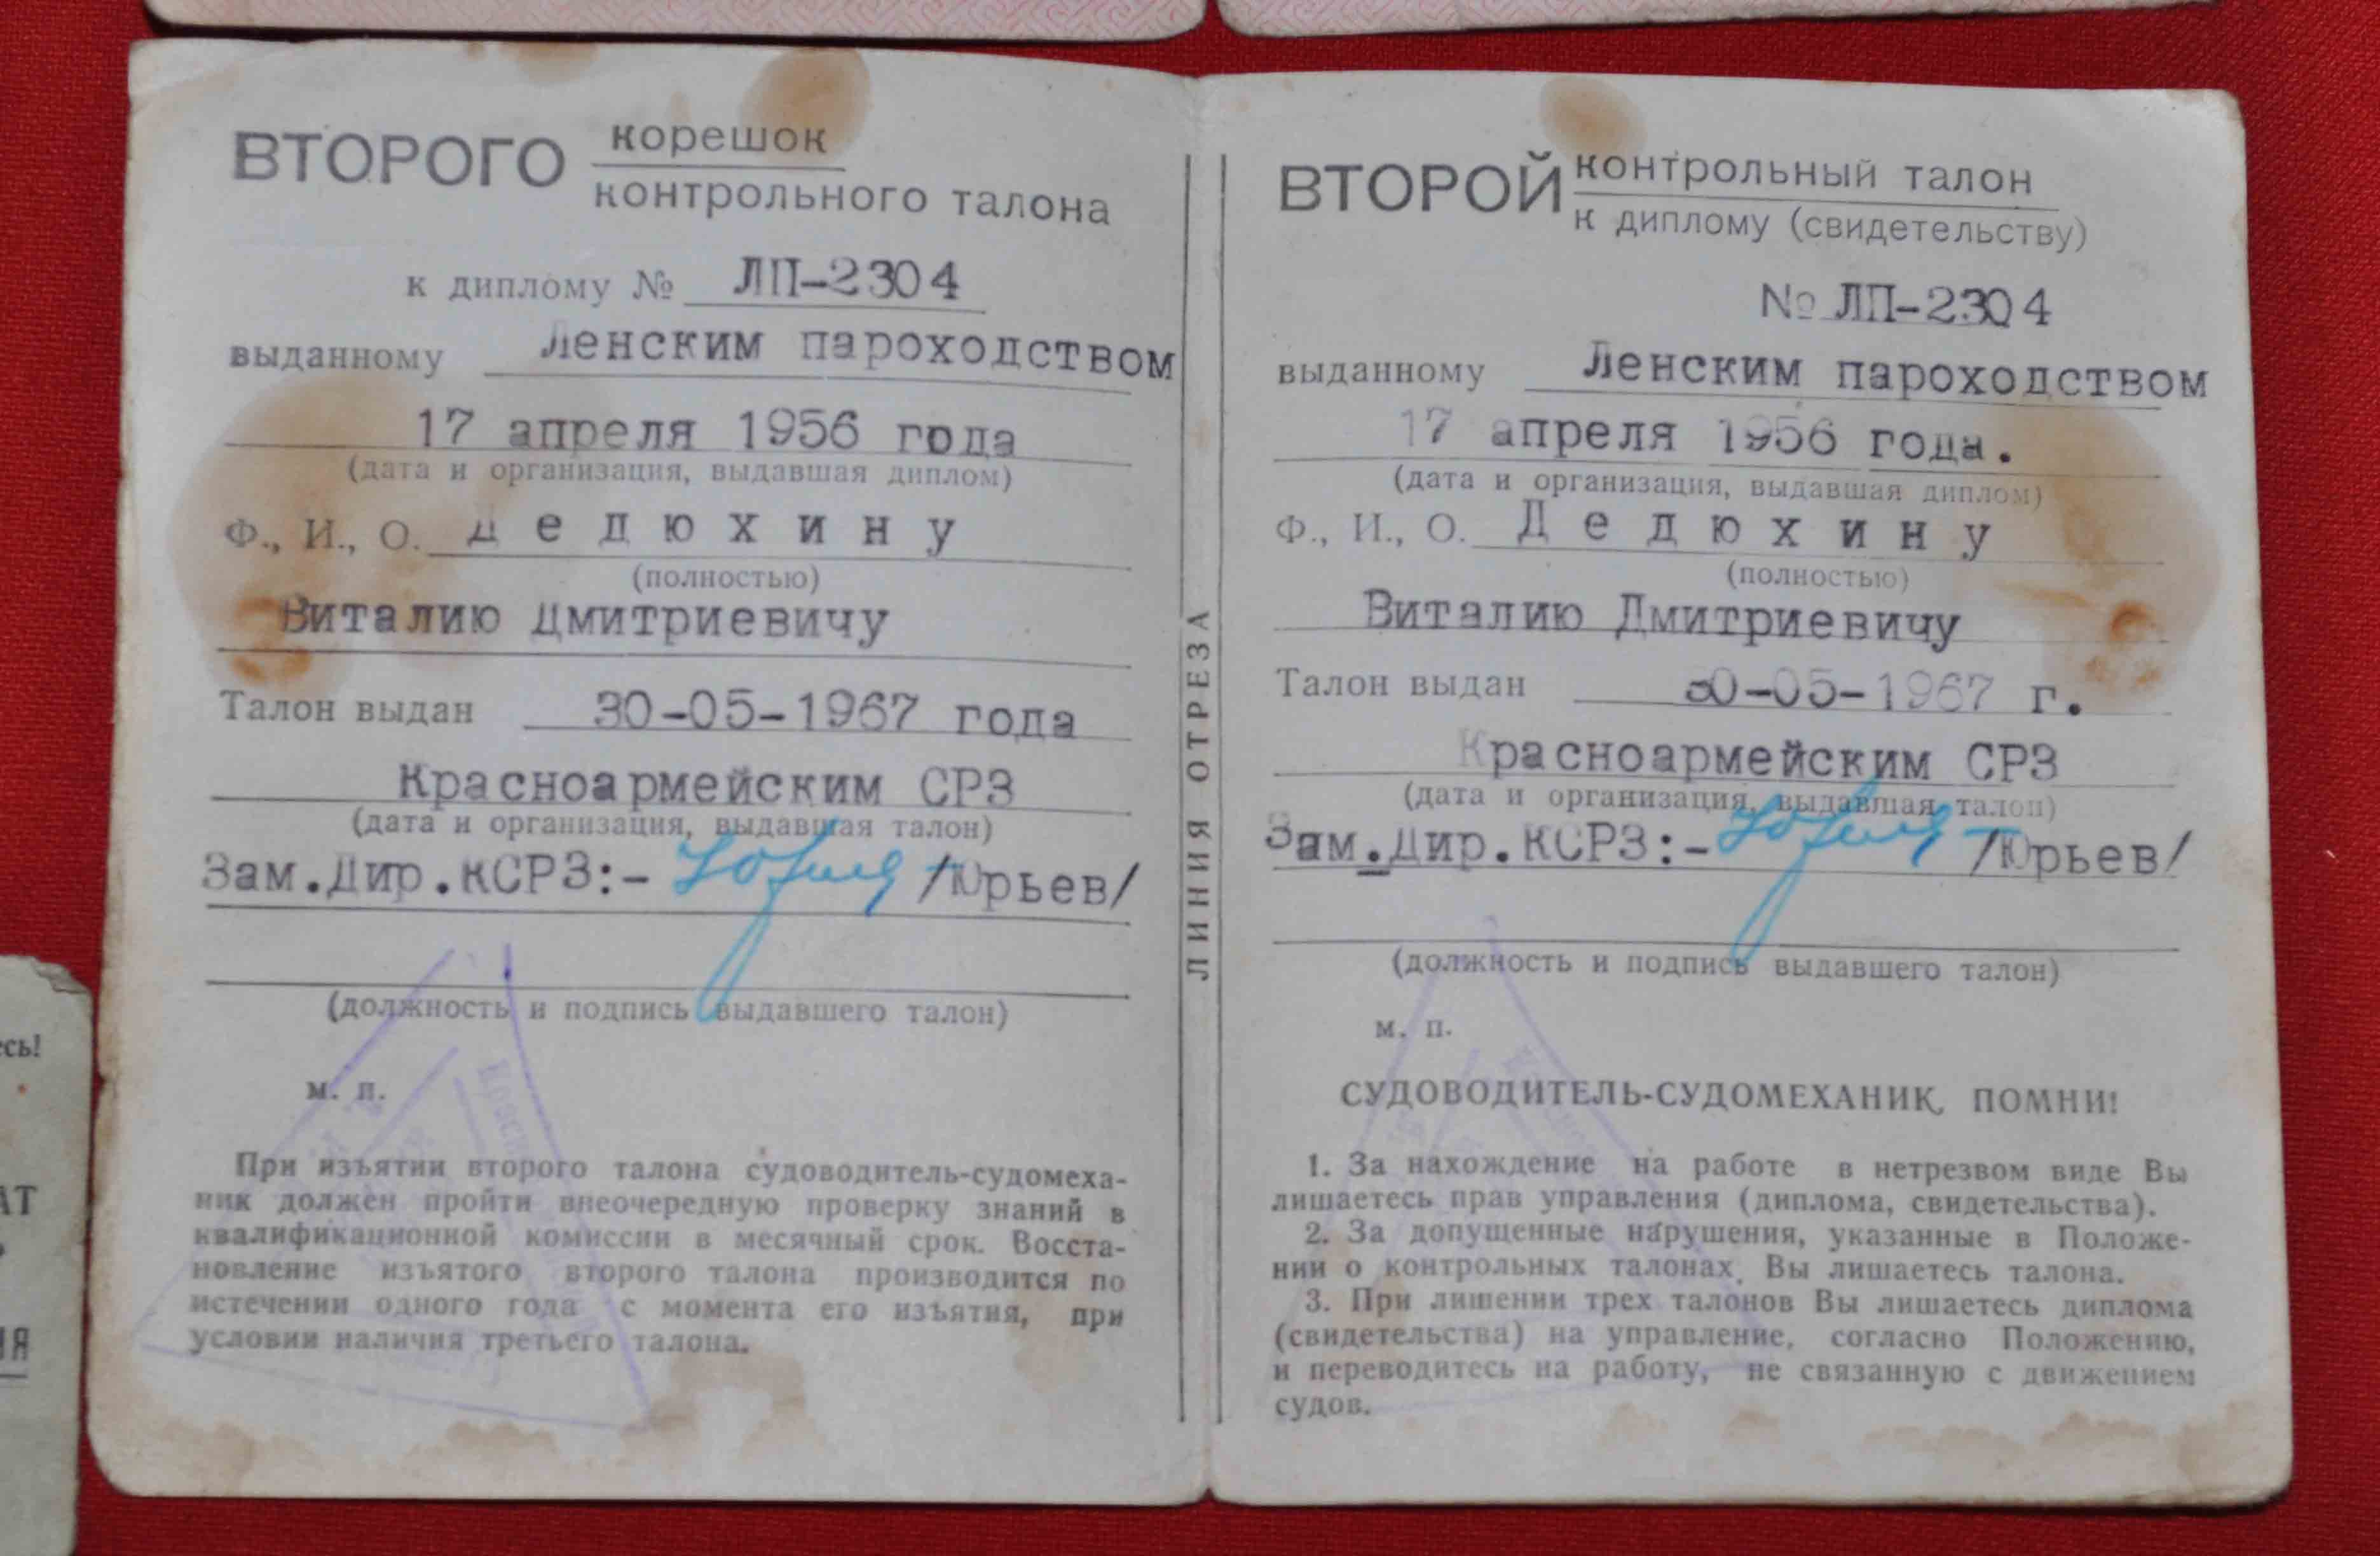 ВТОРОГО корешок
контрольного талона
к диплому № ЛП-2304
выданному Ленским пароходством
17 апреля 1956 года
(дата и организация, выдавшая диплом)
Ф., И., О. Дедюхину
(полностью)
Виталию Дмитриевичу
Талон выдан 30-05-1967 года
Красноармейским СРЗ
(дата и организация, выдавшая талон)
Зам.Дир.КСРЗ:- /Юрьев/
(должность и подпись выдавшего талон)
м. п.
При изъятии второго талона судоводитель-судомеха-
ник должен пройти внеочередную проверку знаний в
квалификационной комиссии в месячный срок. Восста-
новление изъятого второго талона производится по
истечении одного года с момента его изъятия, при
условии наличия третьего талона.
ЛИНИЯ ОТРЕЗА
ВТОРОЙ контрольный талон
к диплому (свидетельству)
№ ЛП-2304
выданному Ленским пароходством
17 апреля 1956 года.
(дата и организация, выдавшая диплом)
Ф., И., О. Дедюхину
(полностью)
Виталию Дмитриевичу
Талон выдан 30-05-1967 г.
Красноармейским СРЗ
(дата и организация, выдавшая талон)
Зам.Дир.КСРЗ:- /Юрьев/
(должность и подпись выдавшего талон)
м. п.
СУДОВОДИТЕЛЬ-СУДОМЕХАНИК, ПОМНИ!
1. За нахождение на работе в нетрезвом виде Вы
лишаетесь прав управления (диплома, свидетельства).
2. За допущенные нарушения, указанные в Положе-
нии о контрольных талонах, Вы лишаетесь талона.
3. При лишении трех талонов Вы лишаетесь диплома
(свидетельства) на управление, согласно Положению,
и переводитесь на работу, не связанную с движением
судов.